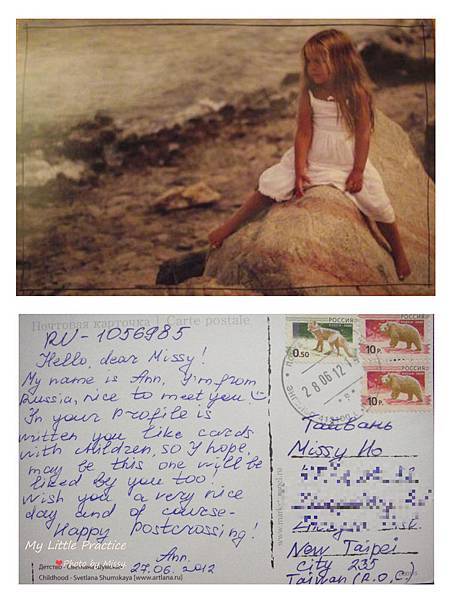 Почтовая карточка | Carte postale
RU-1056985
Hello, dear Missy!
My name is Ann, I'm from
Russia, nice to meet you
In your profile is
written you like cards
with children, so I hope,
may be this one will be
liked by you too.
Wish you a very nice
day and of course-
Happy postcrossing!
Ann.
27.06.2012
Детство - Светлана
Childhood - Svetlana Shumskaya [www.artlana.ru]
My Little Practice
Photo by Missy
РОССИЯ
0.50
РОССИЯ
10 Р.
РОССИЯ
10 Р.
2 8 06 12
Тайвань
Missy Ho
New Taipei
City 235
Taiwan (R.O.C.)